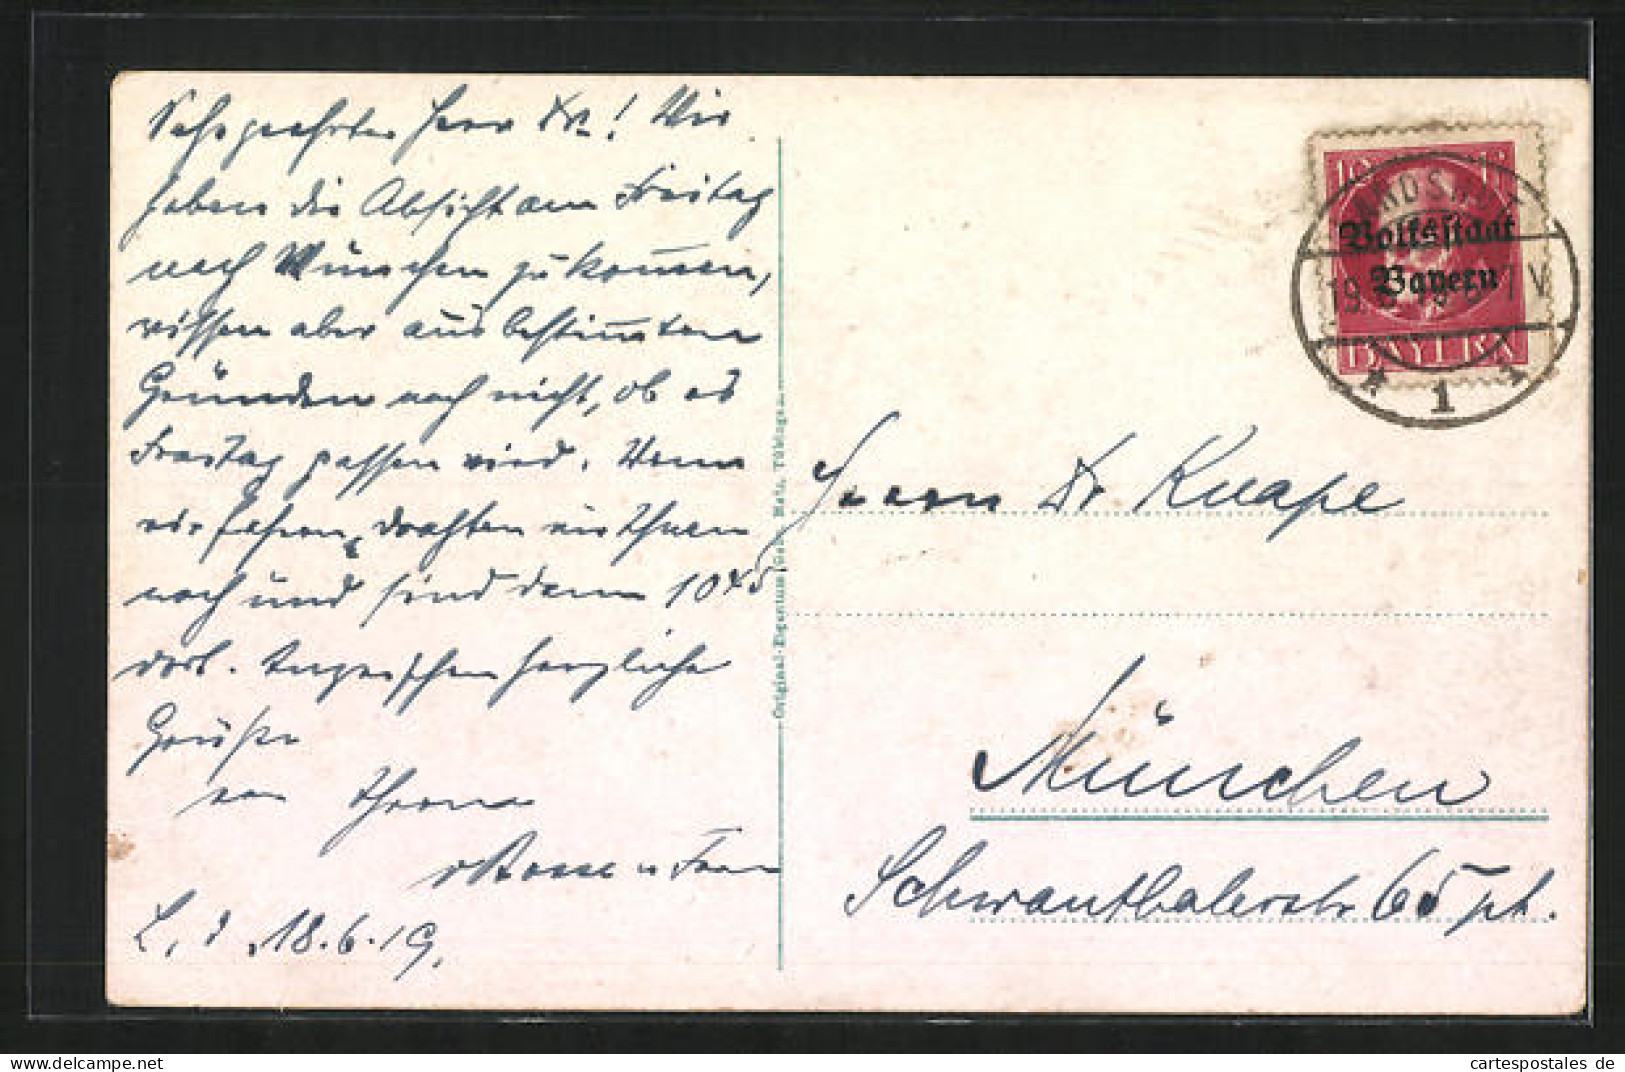 Sehr geehrter Herr Dr.! Wir
haben die Absicht am Freitag
nach München zu kommen,
wissen aber aus bestimmten
Gründen noch nicht, ob es
Freitag passen wird. Wenn
wir fahren, drahten wir Ihnen
noch und sind dann 10 45
dort. Inzwischen herzliche
Grüße
von Ihrem
u Frau
L, d. 18.6.19.
Original-Eigentum Gebr. Metz, Tübingen
10
Volksstaat
Bayern
BAYERN
LANDSHUT
19. 6. 19 6-7 V
* 1 *
Herrn Dr Knape
München
Schwanthalerstr 65 pt.
www.cartespostales.eu
cartespostales de